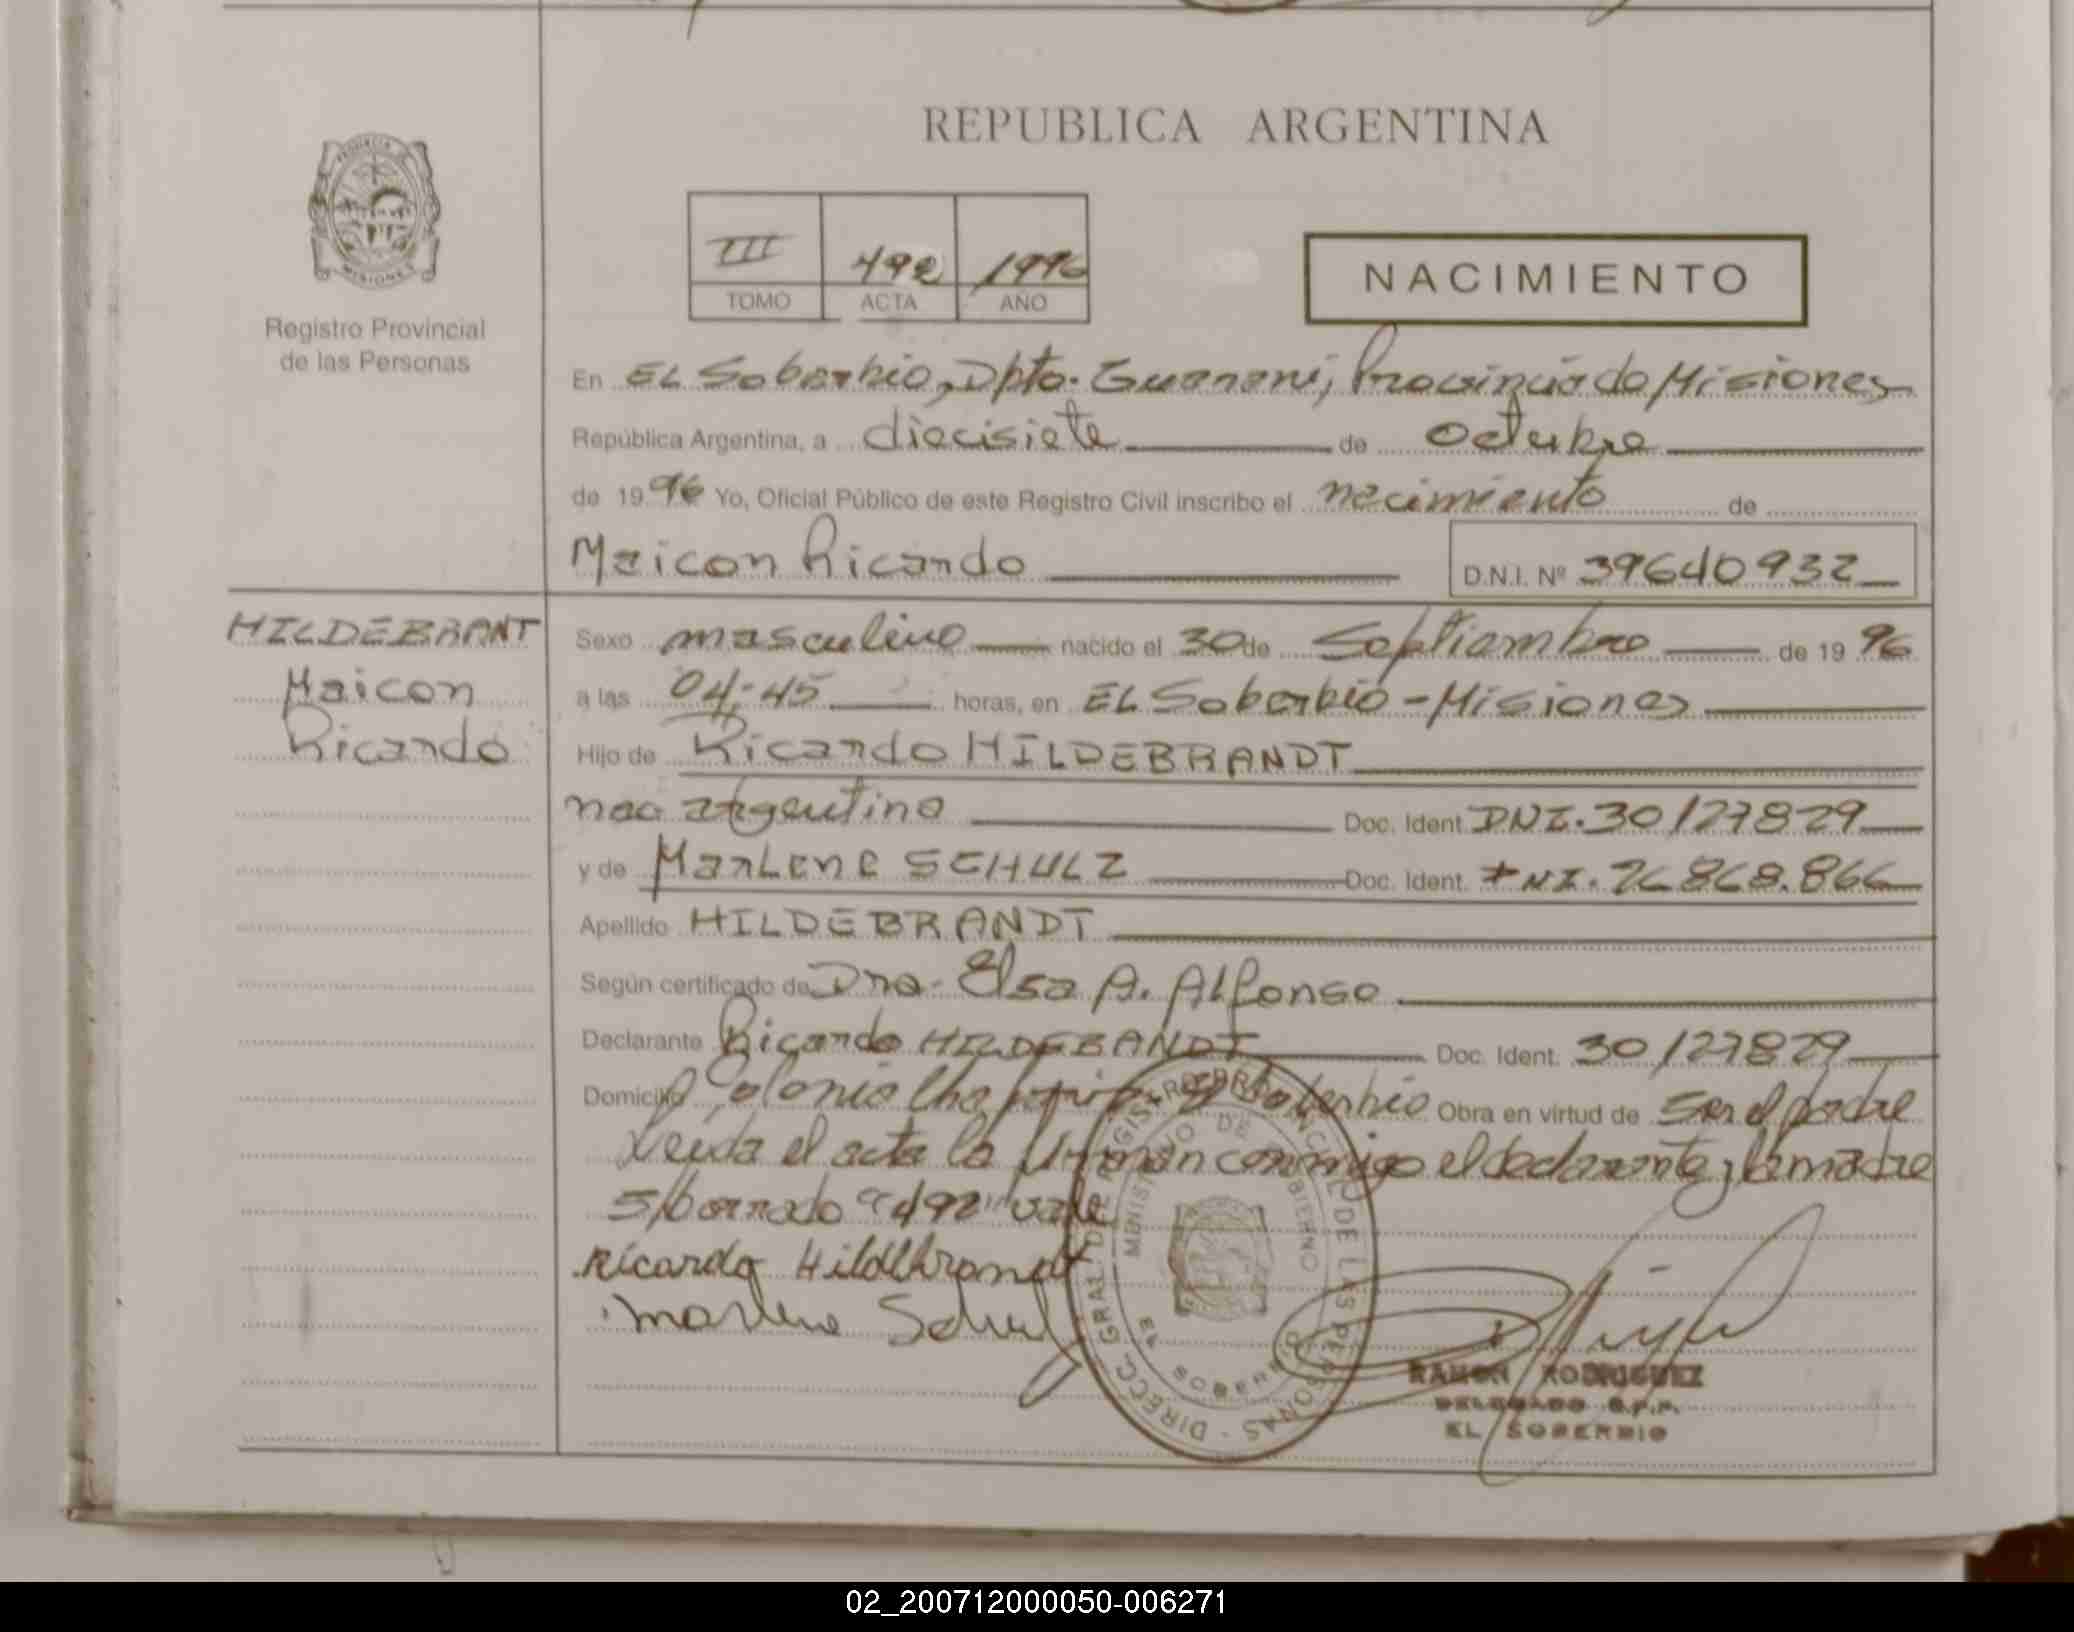 REPUBLICA ARGENTINA
PROVINCIA
MISIONES
Registro Provincial
de las Personas
III 492 1996
TOMO ACTA AÑO
NACIMIENTO
En EL Soberbio, Dpto. Guarani, Provincia de Misiones
República Argentina, a diecisiete de Octubre
de 1996 Yo, Oficial Público de este Registro Civil inscribo el nacimiento de
Maicon Ricardo D.N.I. Nº 39640932
HILDEBRANT
Maicon
Ricardo
Sexo masculino nacido el 30 de Septiembre de 1996
a las 04:45 horas, en EL Soberbio - Misiones
Hijo de Ricardo HILDEBRANDT
nac argentina Doc. Ident DNI. 30127829
y de MarLene SCHULZ Doc. Ident. DNI. 26.868.866
Apellido HILDEBRANDT
Según certificado de Dra. Elsa A. Alfonso
Declarante Ricardo HILDEBANDT Doc. Ident. 30127829
Domicilio Colonia Soberbio Obra en virtud de Ser el padre
Leida el acta la firman conmigo el declarante y la madre
S/borrado "492" vale
Ricardo Hildebrandt
Marlene Schul
DIRECC. GRAL. DE REGISTRO PROVINCIAL DE LAS PERSONAS -
MINISTERIO DE GOBIERNO
EL SOBERBIO
RAMON RODRIGUEZ
DELEGADO R.P.P.
EL SOBERBIO
02_200712000050-006271